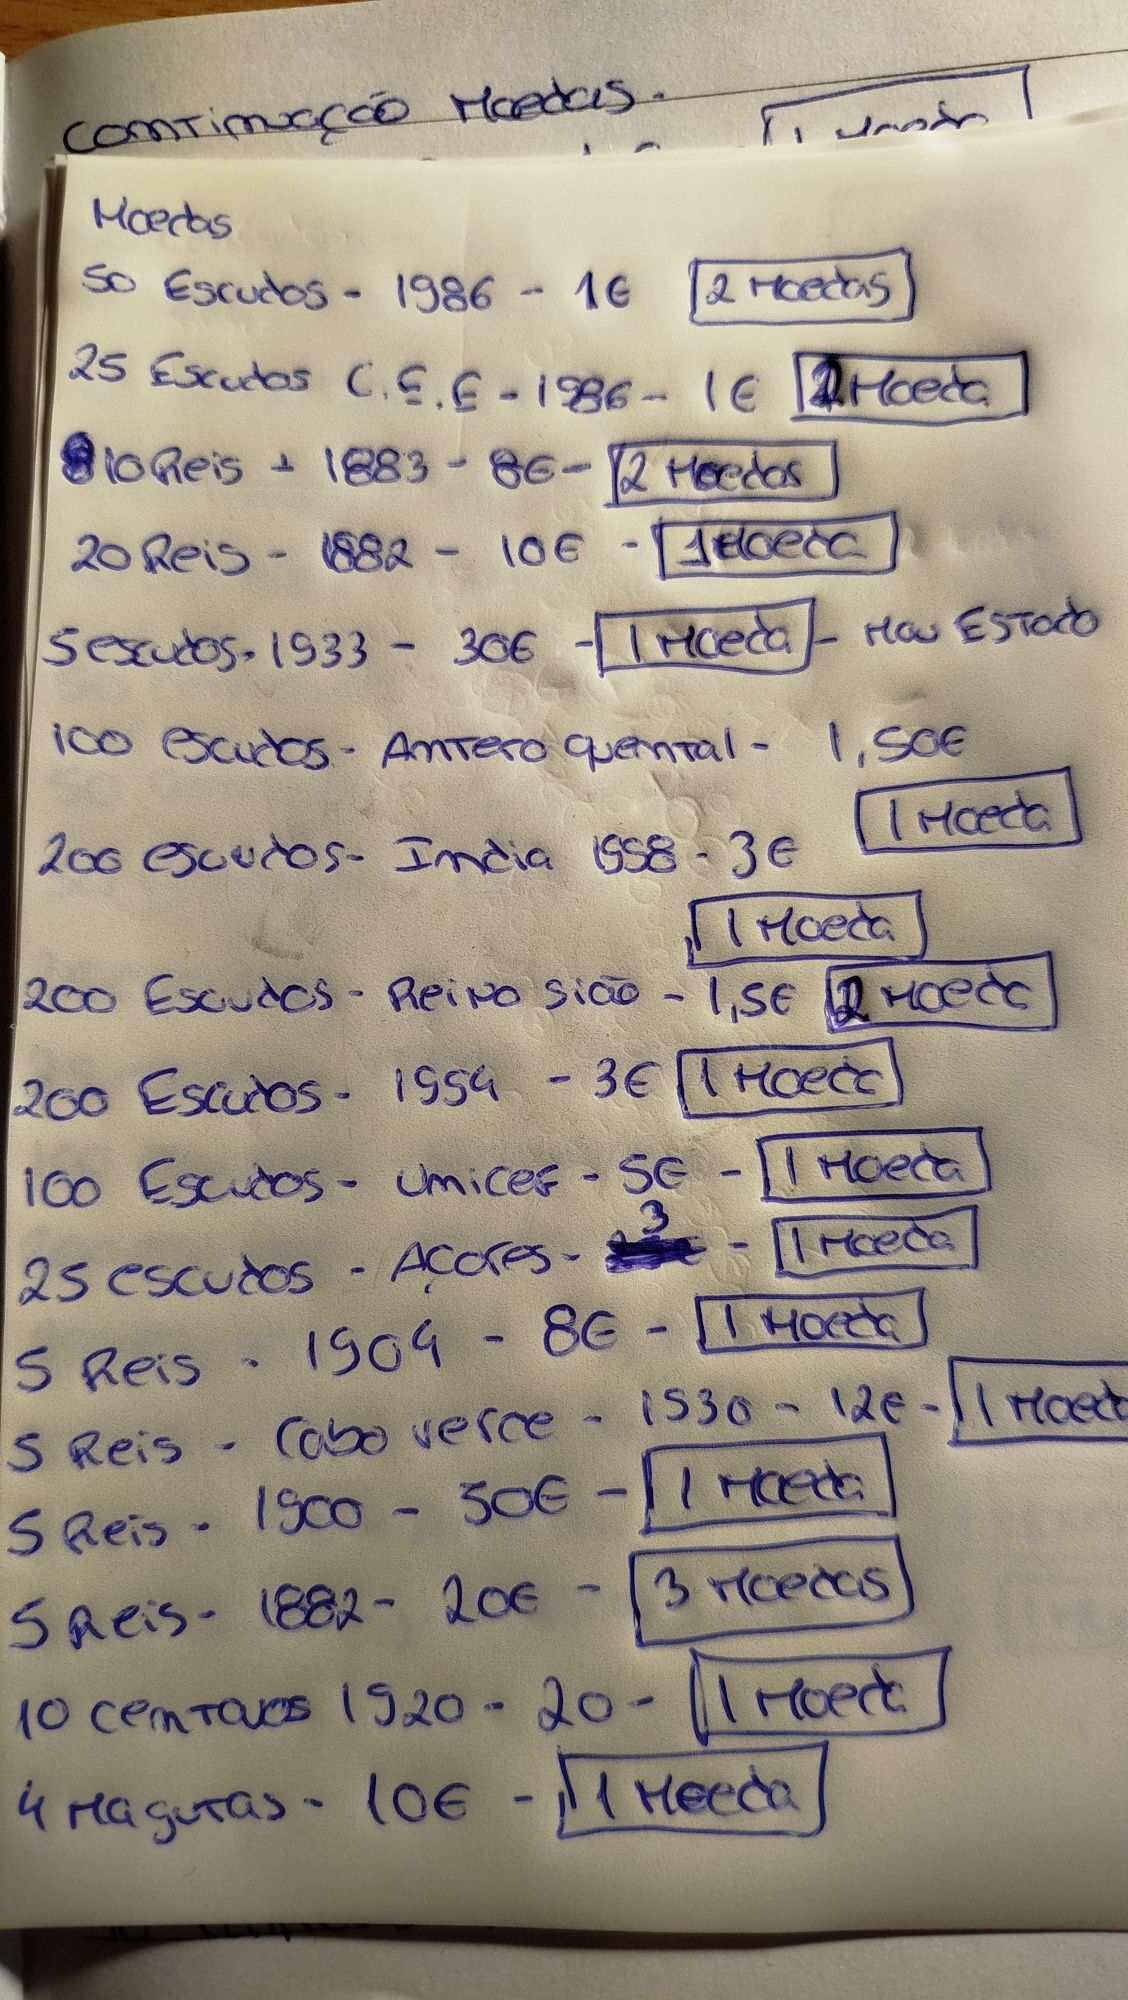 Continuação Moedas.
1 Moeda
Moedas
50 Escudos - 1986 - 1€ 2 Moedas
25 Escudos C.E.E - 1986 - 1€ 2 Moeda
10 Reis - 1883 - 8€ - 2 Moedas
20 Reis - 1882 - 10€ - 1 Moeda
5 escudos - 1933 - 30€ - 1 Moeda - Mau Estado
100 escudos - Antero quental - 1,50€
1 Moeda
200 escudos - India 1998 - 3€
1 Moeda
200 Escudos - Reino sião - 1,5€ 2 Moeda
200 Escudos - 1994 - 3€ 1 Moeda
100 Escudos - Unicef - 5€ - 1 Moeda
25 escudos - Açores - 3 - 1 Moeda
5 Reis - 1904 - 8€ - 1 Moeda
5 Reis - Cabo verde - 1930 - 12€ - 1 Moeda
5 Reis - 1900 - 50€ - 1 Moeda
5 Reis - 1882 - 20€ - 3 Moedas
10 centavos 1920 - 20 - 1 Moeda
4 Macutas - 10€ - 1 Moeda